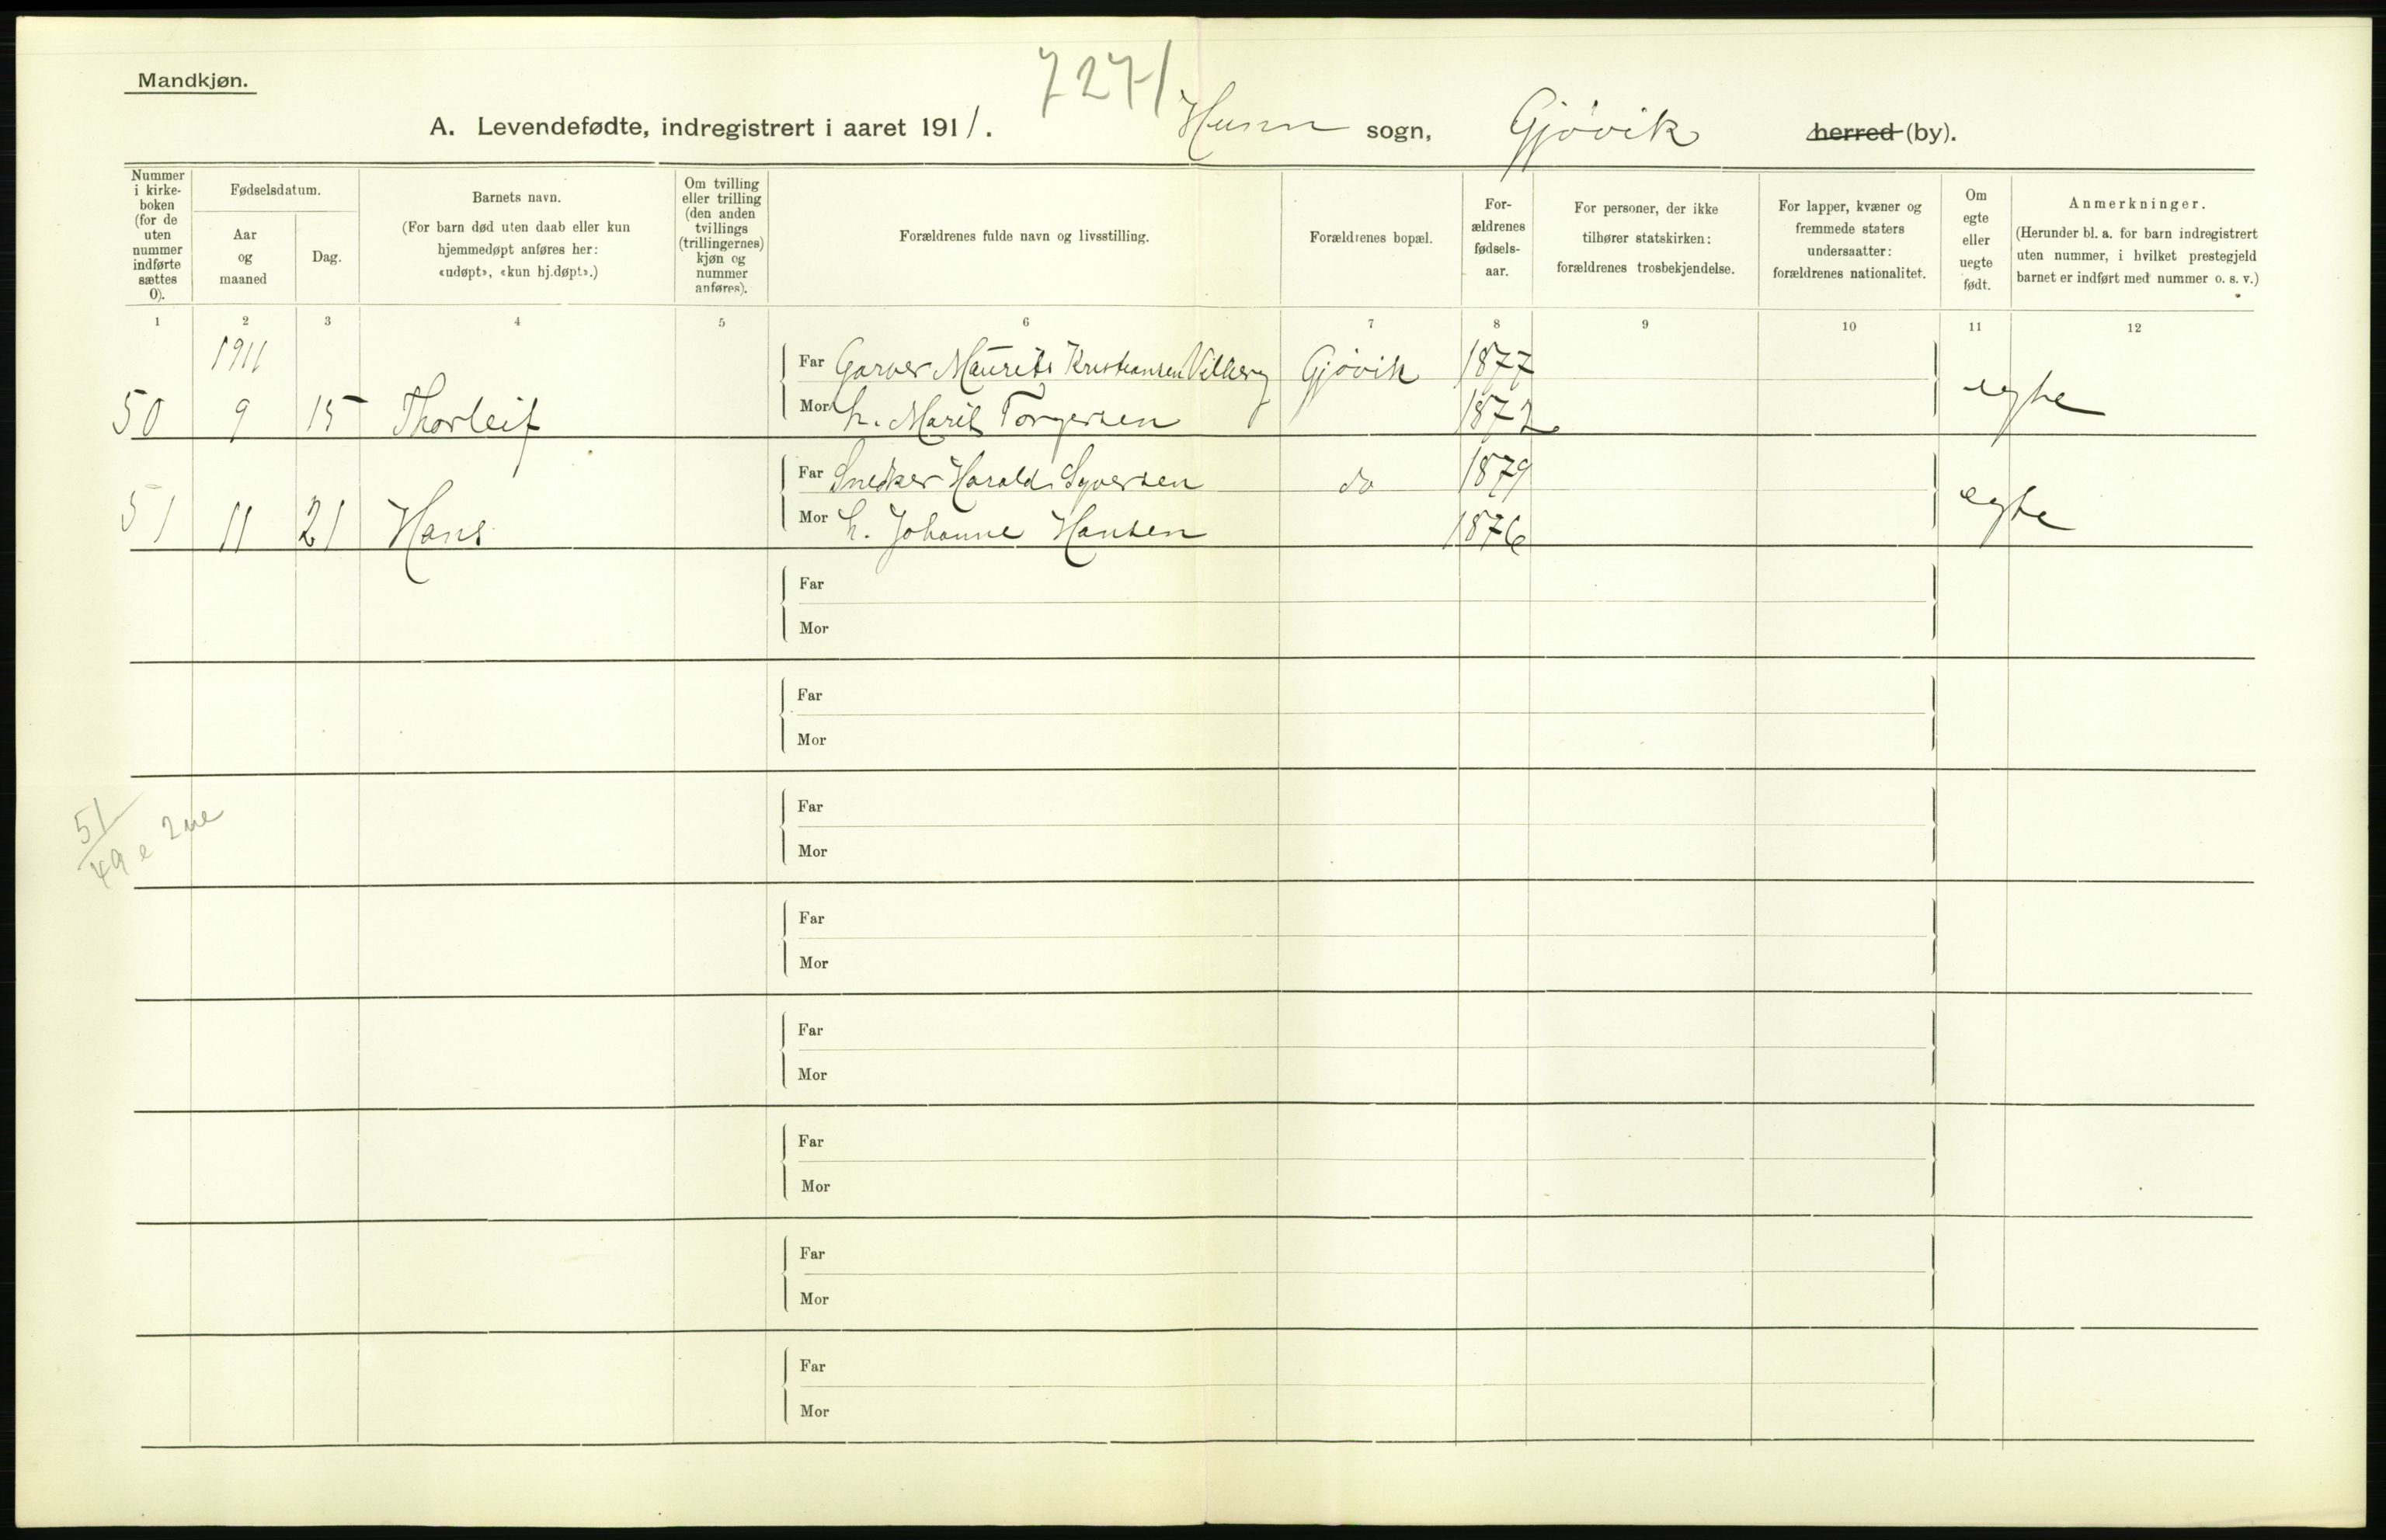 7271
Mandkjøn.
A. Levendefødte, indregistrert i aaret 1911. Hunn sogn, Gjøvik herred (by).
Nummer i kirke- boken (for de uten nummer indførte sættes 0).
Fødselsdatum.
Aar og maaned
Dag.
Barnets navn.
(For barn død uten daab eller kun hjemmedøpt anføres her: «udøpt», «kun hj.døpt».)
Om tvilling eller trilling (den anden tvillings (trillingernes) kjøn og nummer anføres).
Forældrenes fulde navn og livsstilling.
Forældrenes bopæl.
For- ældrenes fødsels- aar.
For personer, der ikke tilhører statskirken: forældrenes trosbekjendelse.
For lapper, kvæner og fremmede staters undersaatter: forældrenes nationalitet.
Om egte eller uegte født.
Anmerkninger.
(Herunder bl. a. for barn indregistrert uten nummer, i hvilket prestegjeld barnet er indført med nummer o. s. v.)
1 2 3 4 5 6 7 8 9 10 11 12
1911
Far Garver Maurits Kristiansen Vilberg Gjøvik 1877
50 9 15 Thorleif Mor h. Marit Torgersen 1872 egte
Far Snedker Harald Syversen do 1879
51 11 21 Hans Mor h. Johanne Hansen 1876 egte
Far
Mor
Far
Mor
51
49 e 2 ue
Far
Mor
Far
Mor
Far
Mor
Far
Mor
Far
Mor
Far
Mor